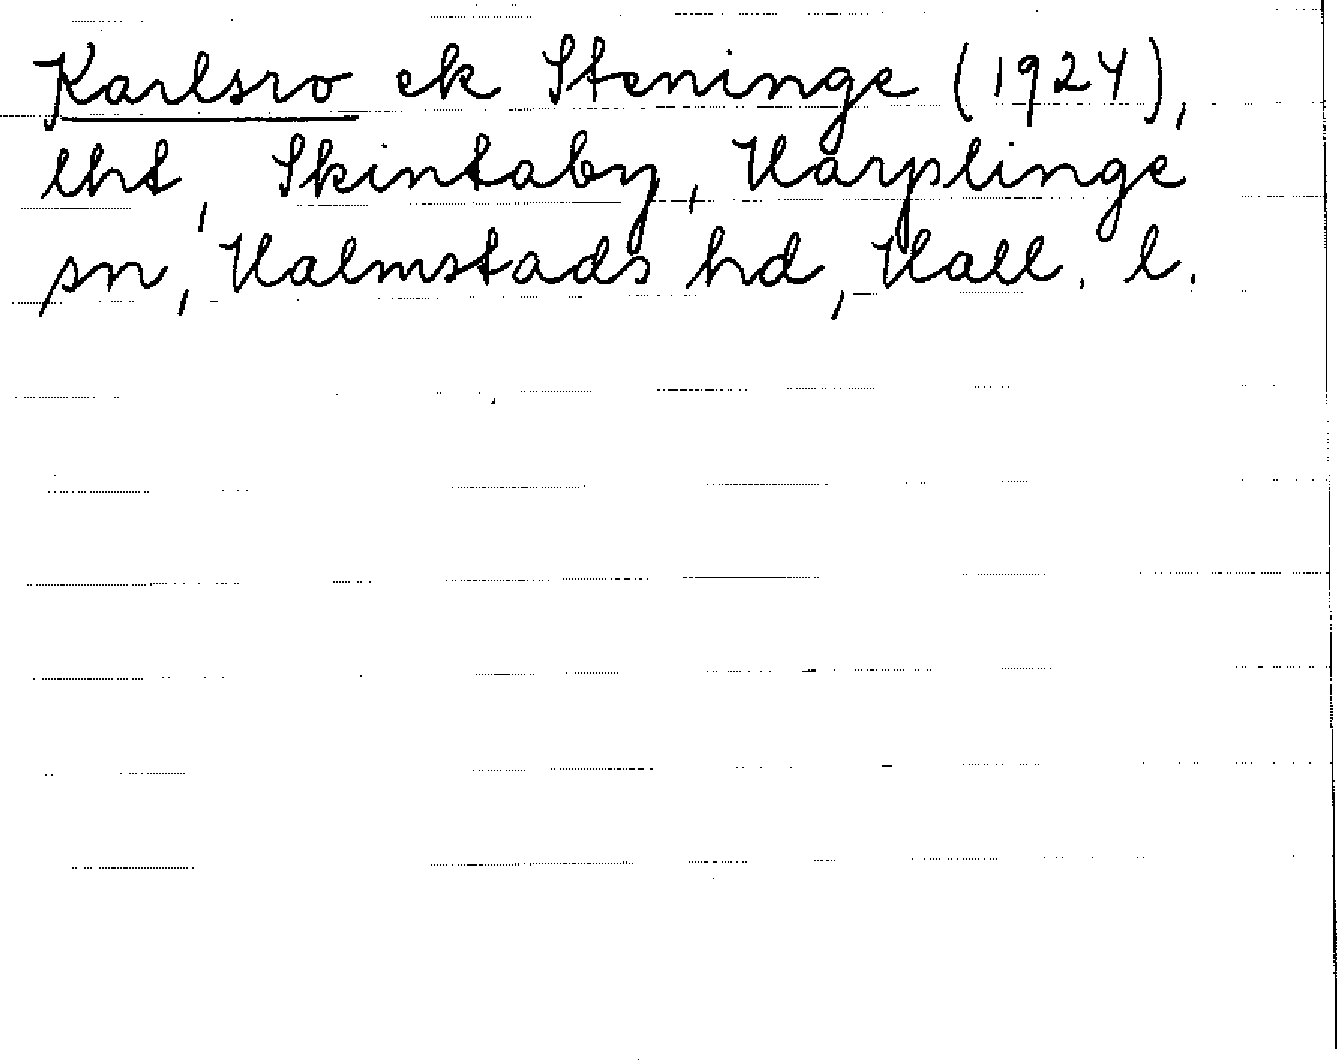 Karlsro ek Steninge (1924),
lht, Skintaby, Harplinge
sn, Halmstads hd, Hall. l.